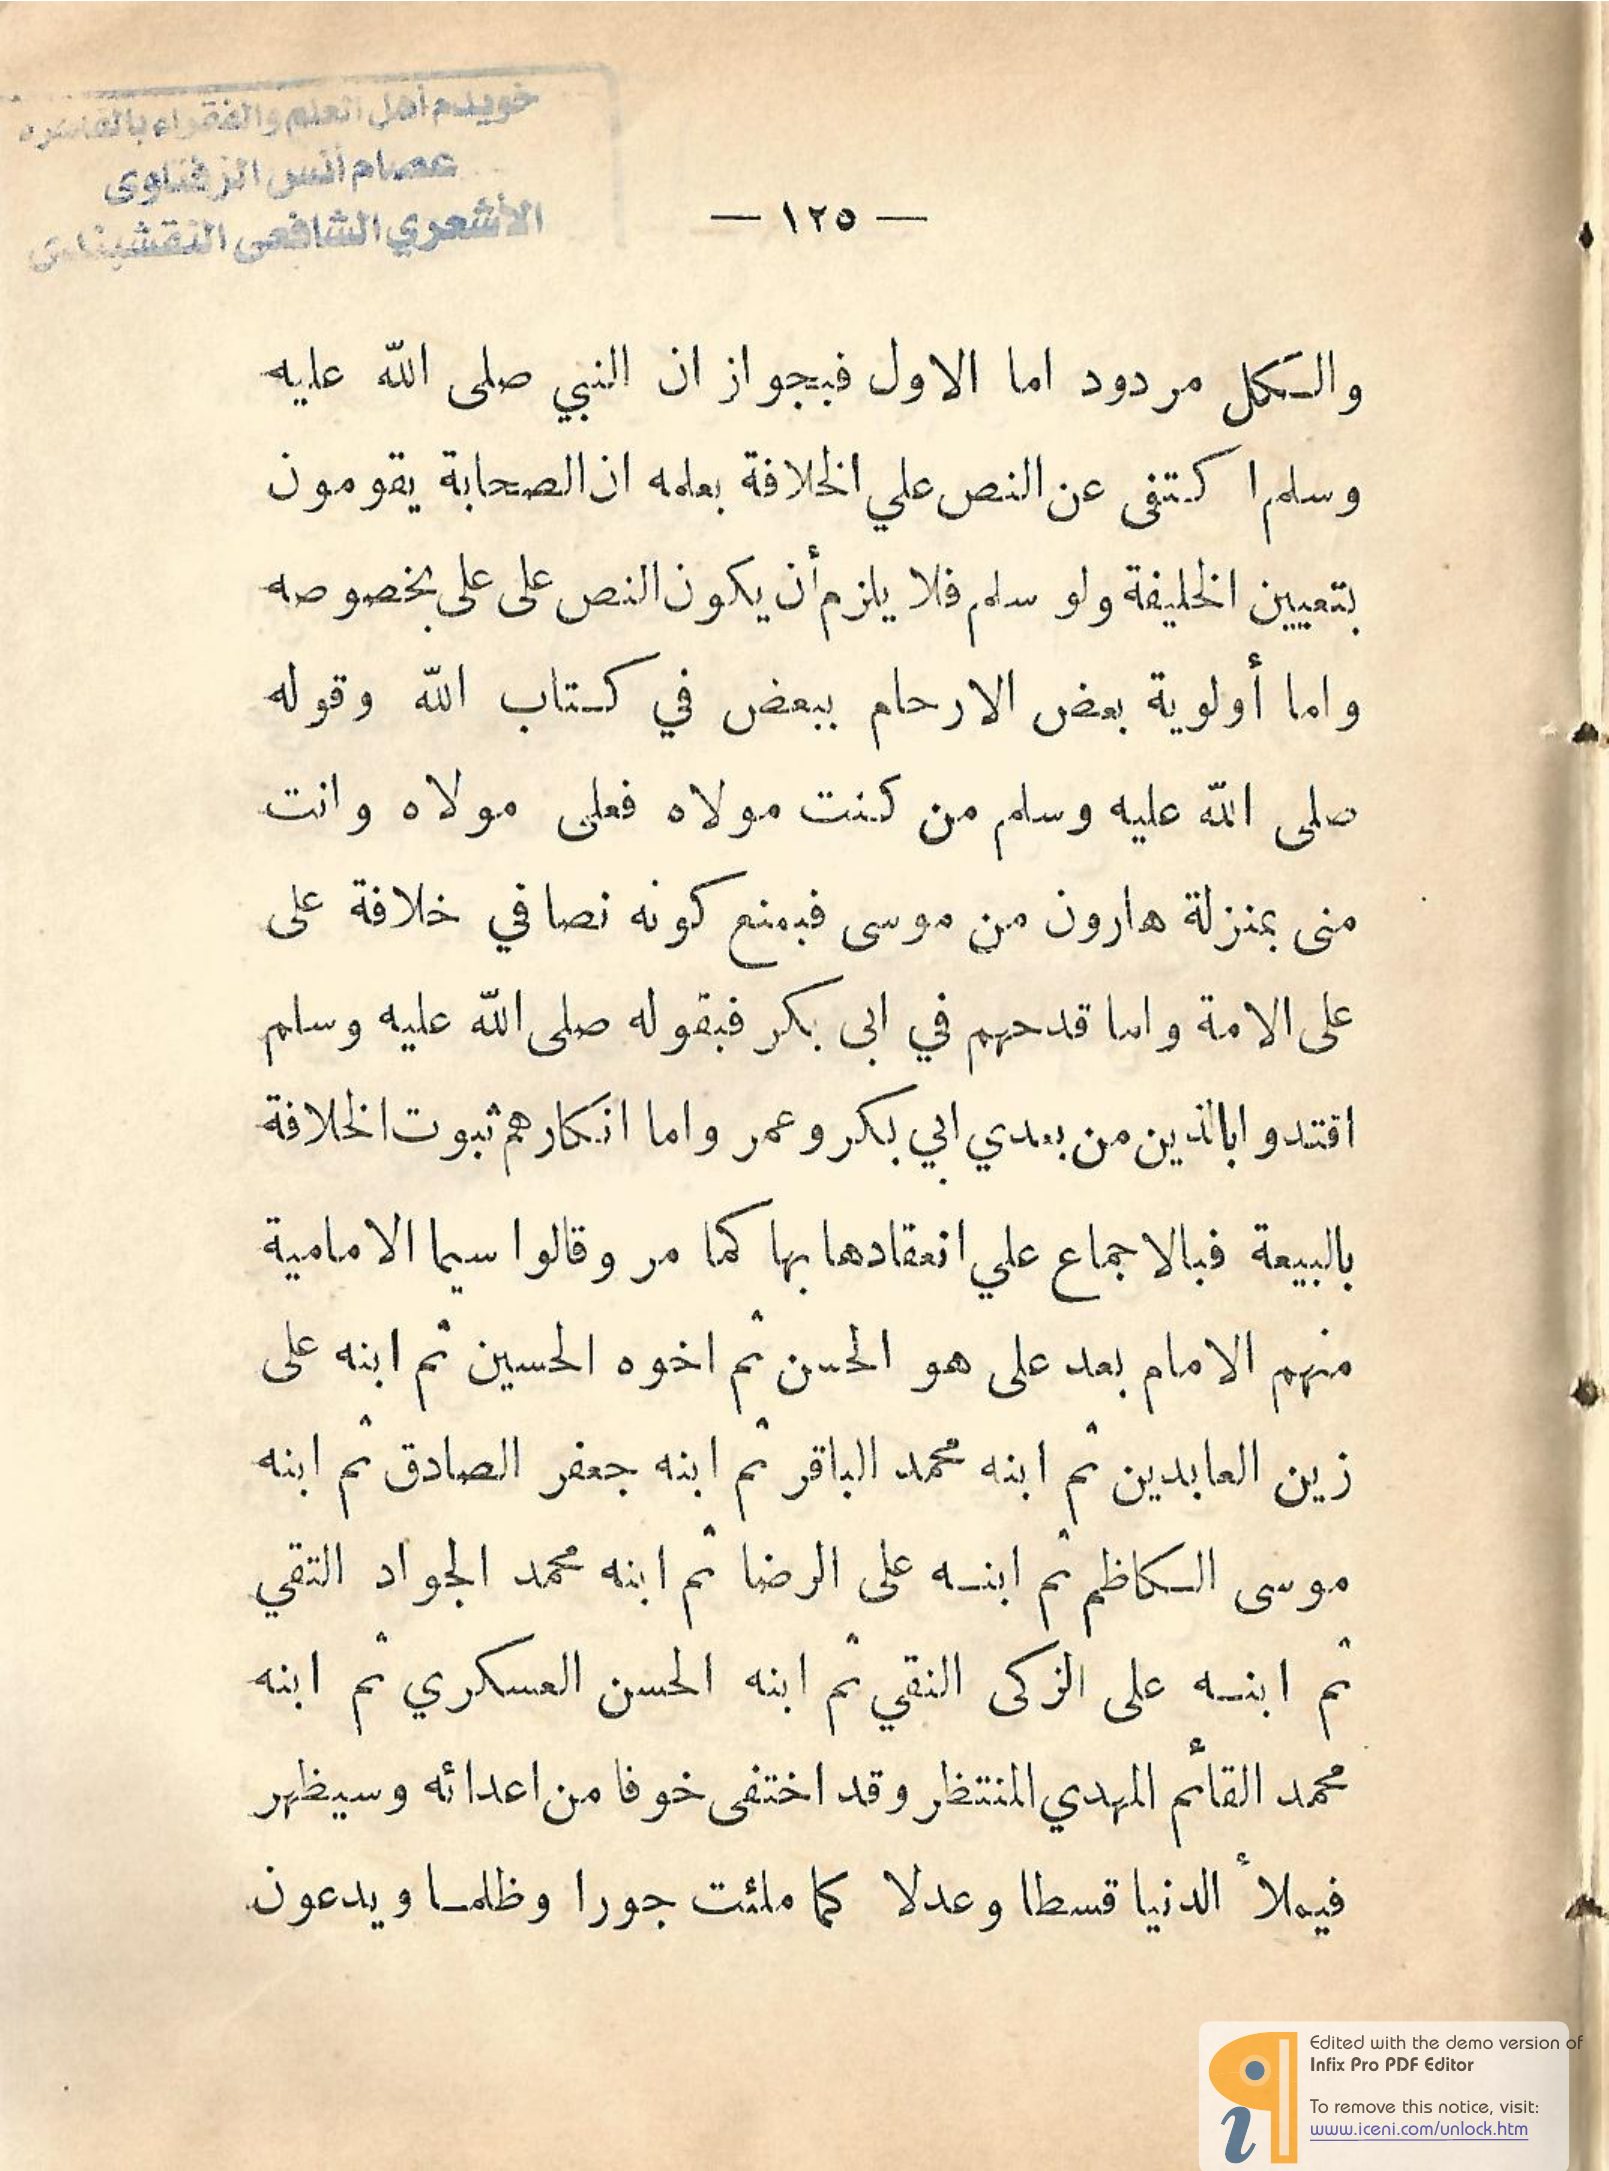 خويدم أهل العلم والفقراء بالقاهره
عصام أنس الزفتاوى
الأشعري الشافعى النقشبندى
— ١٢٥ —
والكل مردود اما الاول فبجواز ان النبي صلى الله عليه
وسلم اكتفى عن النص علي الخلافة بعلمه ان الصحابة يقومون
بتعيين الخليفة ولو سلم فلا يلزم أن يكون النص على على بخصوصه
واما أولوية بعض الارحام ببعض في كتاب الله وقوله
صلى الله عليه وسلم من كنت مولاه فعلى مولاه وانت
منى بمنزلة هارون من موسى فبمنع كونه نصا في خلافة على
على الامة واما قدحهم في ابى بكر فبقوله صلى الله عليه وسلم
اقتدوا بالذين من بعدي ابي بكر وعمر واما انكارهم ثبوت الخلافة
بالبيعة فبالاجماع علي انعقادها بها كما مر وقالوا سيما الامامية
منهم الامام بعد على هو الحسن ثم اخوه الحسين ثم ابنه على
زين العابدين ثم ابنه محمد الباقر ثم ابنه جعفر الصادق ثم ابنه
موسى الكاظم ثم ابنه على الرضا ثم ابنه محمد الجواد التقي
ثم ابنه على الزكى النقي ثم ابنه الحسن العسكري ثم ابنه
محمد القائم المهدي المنتظر وقد اختفى خوفا من اعدائه وسيظهر
فيملأ الدنيا قسطا وعدلا كما ملئت جورا وظلما ويدعون
Edited with the demo version of
Infix Pro PDF Editor
To remove this notice, visit:
www.iceni.com/unlock.htm